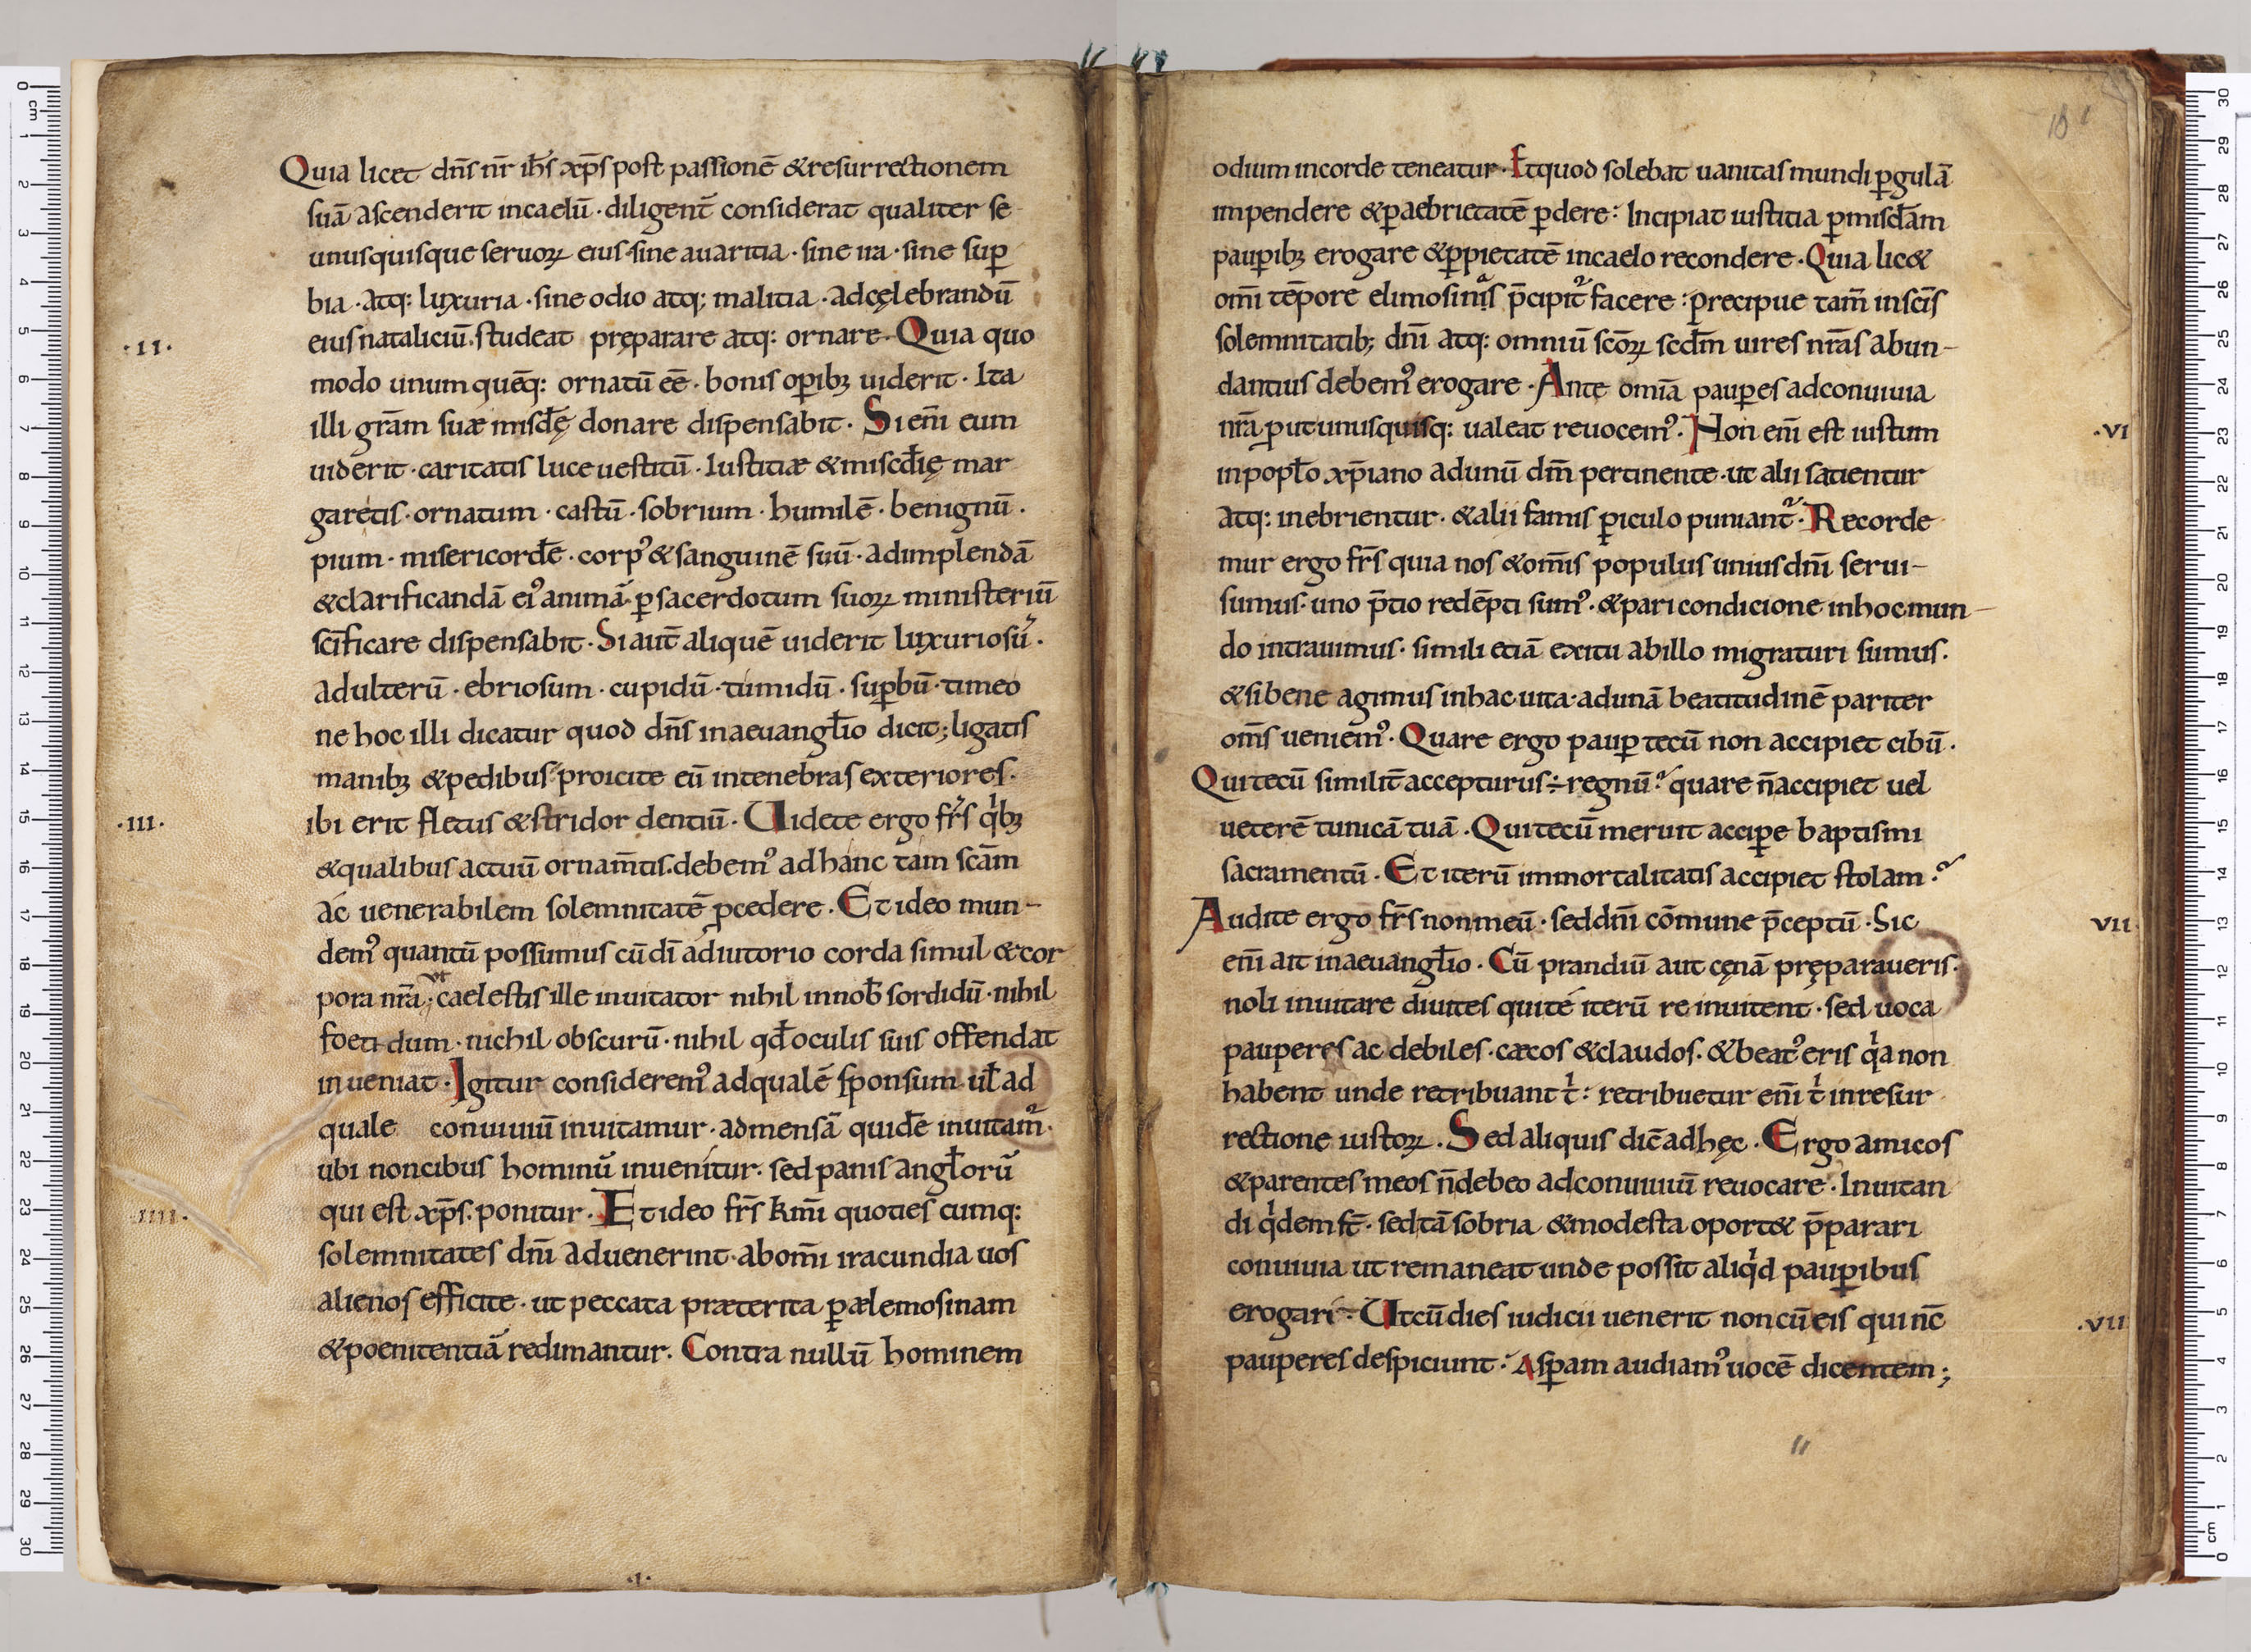 Quia licet dn̄s nr̄ ih̄s xp̄s post passionē & resurrectionem
suā ascenderit in caelū · diligent̄ considerat qualiter se
unusquisque seruoꝝ eius sine auaritia · sine ira · sine suꝑ
bia · atq: luxuria · sine odio atq; malitia · ad cęlebrandū
·II·
eius nataliciū. studeat pręparare atq: ornare · Quia quo
modo unumquēq: ornatū eē · bonis oꝑibꝫ uiderit · Ita
illi grām suæ misdę̄ donare dispensabit · Si enī eum
uiderit · caritatis luce uestitū · Iustitiæ & miscd̄ię mar
garetis · ornatum · castū · sobrium · humilē · benignū ·
pium · misericordē · corpꝰ & sanguinē suū · ad implendā
& clarificandā eiꝰ animā · ꝑ sacerdotum suoꝝ ministeriū
scīficare dispensabit · Si aut̄ aliquē uiderit luxuriosū ·
adulterū · ebriosum · cupidū · tumidū · suꝑbū · timeo
ne hoc illi dicatur quod dn̄s in aeuangl̄io dicit; ligatis
manibꝫ & pedibus proicite eū in tenebras exteriores ·
·III·
ibi erit fletus & stridor dentiū · Uidete ergo fr̄s qͥbꝫ
& qualibus actuū ornam̄tis. debemꝰ ad hanc tam scām
ac uenerabilem solemnitatē ꝓcedere · Et ideo mun-
demꝰ quantū possumus cū dī adiutorio corda simul & cor
pora nrā · ut caelestis ille inuitator nihil in nob̄ sordidū · nihil
foetidum · nichil obscurū · nihil qd̄ oculis suis offendat
inueniat · Igitur consideremꝰ ad qualē sponsum · ul̄ ad
quale conuiuiū inuitamur · ad mensā quidē inuitam̄ ·
ubi non cibus hominū inuenitur · sed panis angl̄orū
·IIII·
qui est xp̄s. ponitur · Et ideo fr̄s km̄i quotiescumq:
solemnitates dn̄i aduenerint · ab om̄i iracundia uos
alienos efficite · ut peccata præterita ꝑ ælemosinam
& poenitentiā redimantur. Contra nullū hominem
·I·
10
odium in corde teneatur · Et quod solebat uanitas mundi ꝑ gulā
impendere & ꝑ aebrietatē ꝑdere: Incipiat iustitia ꝑ misd̄am
pauꝑibꝫ erogare & ꝑ pietatē in caelo recondere · Quia lic&
om̄i tēpore elimosinas p̄cipit̄ facere : precipue tam̄ in scīs
solemnitatibꝫ dn̄i atq: omniū scōꝝ scdm̄ uires nrās abun-
dantius debemꝰ erogare · Ante omīa pauꝑes ad conuiuia
·VI
nrā ꝓut unusquisq: ualeat reuocemꝰ · Non enī est iustum
in popl̄o xp̄iano ad unū dm̄ pertinente · ut alii satientur
atq: inebrientur · & alii famis ꝑiculo puniant̄ · Recorde
mur ergo fr̄s quia nos & om̄is populus unius dn̄i serui-
sumus · uno p̄tio redēpti sumꝰ · & pari condicione in hoc mun-
do intrauimus · simili etiā exitu ab illo migraturi sumus ·
& si bene agimus in hac uita · ad unā beatitudinē pariter
om̄s ueniemꝰ · Quare ergo pauꝑ tecū non accipiet cibū ·
Qui tecū similit̄ accepturus ÷ regnū? quare n̄ accipiet uel
ueterē tunicā tuā · Qui tecū meruit acciꝑe baptismi
sacramentū · Et iterū immortalitatis accipiet stolam?
VII
Audite ergo fr̄s non meū · sed dn̄i cōmune p̄ceptū · Sic
enī ait in aeuangl̄io · Cū prandiū aut cęnā pręparaueris ·
noli inuitare diuites qui te iterū reinuitent · sed uoca
pauperes ac debiles · cæcos & claudos · & beatꝰ eris qͥa non
habent unde retribuant tͥ : retribuetur enī tͥ in resur
rectione iustoꝝ · Sed aliquis dic̄ ad hęc · Ergo amicos
& parentes meos n̄ debeo ad conuiuiū reuocare · Inuitan
di qͥdem st̄ · sed tā sobria & modesta oport& p̄parari
conuiuia ut remaneat unde possit aliqͥd pauꝑibus
·VII
erogari · Ut cū dies iudicii uenerit non cū eis qui nc̄
pauperes despiciunt · Asꝑam audiamꝰ uocē dicentem;